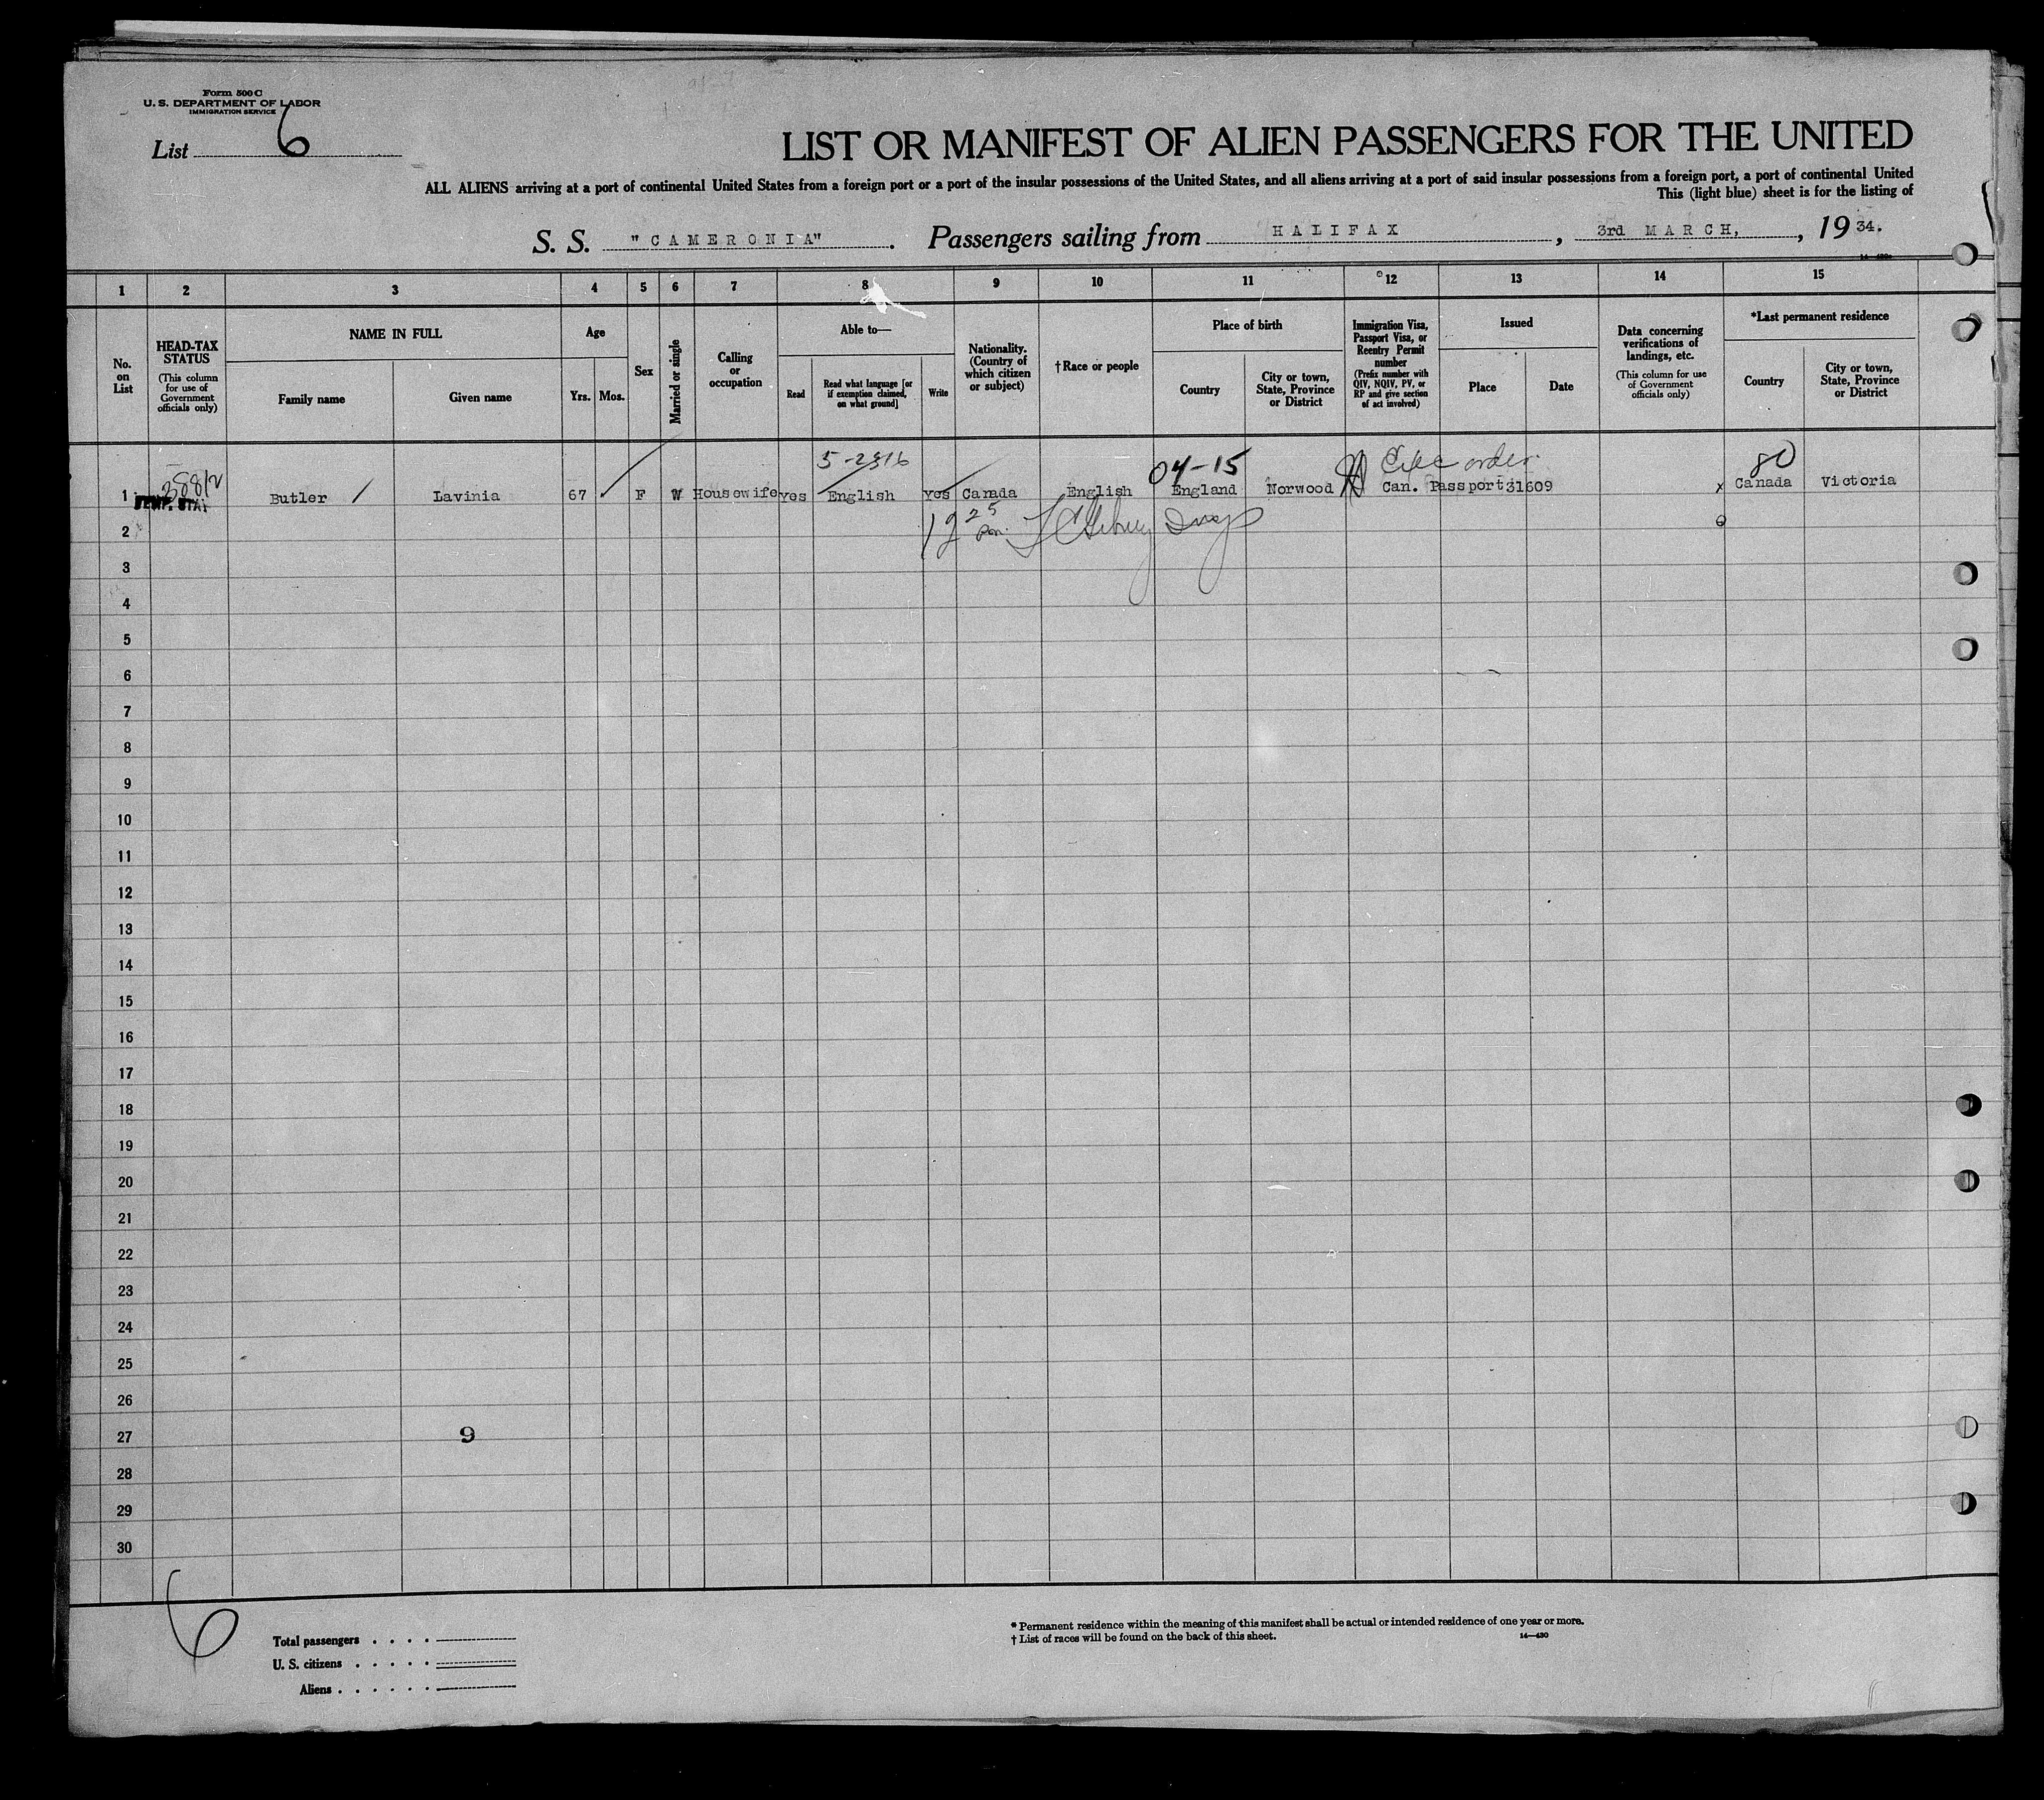 Form 500 C
U. S. DEPARTMENT OF LABOR
IMMIGRATION SERVICE
List 6
LIST OR MANIFEST OF ALIEN PASSENGERS FOR THE UNITED
ALL ALIENS arriving at a port of continental United States from a foreign port or a port of the insular possessions of the United States, and all aliens arriving at a port of said insular possessions from a foreign port, a port of continental United
This (light blue) sheet is for the listing of
S. S. "CAMERONIA". Passengers sailing from HALIFAX, 3rd MARCH, , 19 34.
14—430
1 2 3 4 5 6 7 8 9 10 11 12 13 14 15
No. on List
HEAD-TAX STATUS
(This column for use of Government officials only)
NAME IN FULL
Family name
Given name
Age
Yrs. Mos.
Sex
Married or single
Calling or occupation
Able to—
Read
Read what language [or if exemption claimed, on what ground]
Write
Nationality. (Country of which citizen or subject)
†Race or people
Place of birth
Country
City or town, State, Province or District
Immigration Visa, Passport Visa, or Reentry Permit number
(Prefix number with QIV, NQIV, PV, or RP and give section of act involved)
Issued
Place
Date
Data concerning verifications of landings, etc.
(This column for use of Government officials only)
*Last permanent residence
Country
City or town, State, Province or District
5-2316 04-15 Exec order 80
1 Butler Lavinia 67 F W Housewife Yes English Yes Canada English England Norwood Can. Passport 31609 x Canada Victoria
2
3
4
5
6
7
8
9
10
11
12
13
14
15
16
17
18
19
20
21
22
23
24
25
26
27 9
28
29
30
6
Total passengers . . . .
U. S. citizens . . . . .
Aliens . . . . . .
* Permanent residence within the meaning of this manifest shall be actual or intended residence of one year or more.
† List of races will be found on the back of this sheet. 14—430